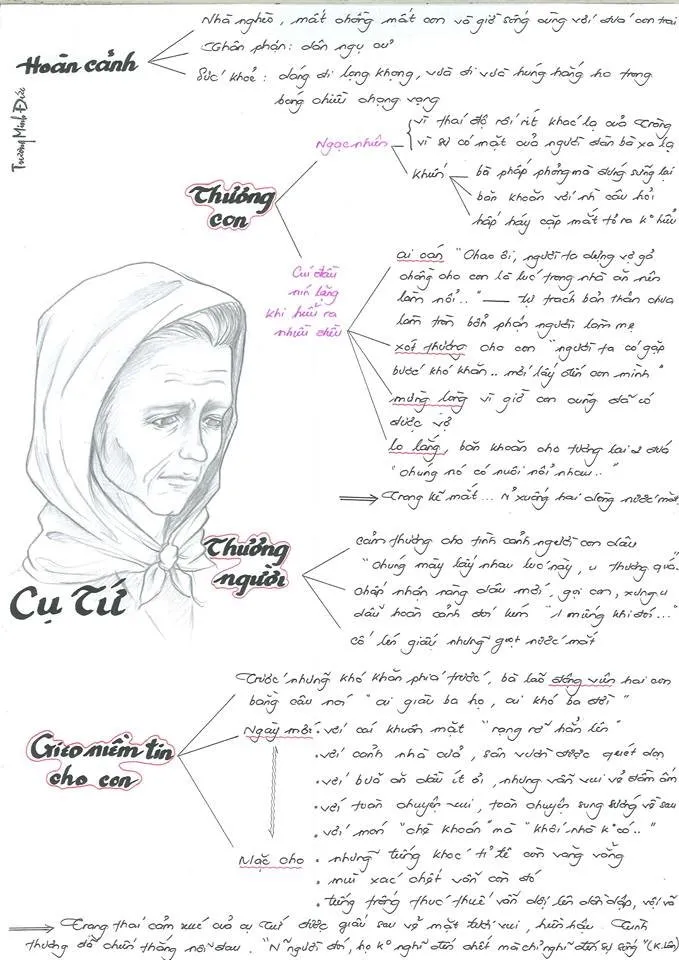 Nhà nghèo, mất chồng mất con và giờ sống cùng với đứa con trai
Hoàn cảnh
Thân phận: dân ngụ cư
Sức khoẻ: dáng đi lọng khọng, vừa đi vừa húng hắng ho trong
bóng chiều chạng vạng
Trương Minh Đức
Thương
con
Ngạc nhiên
vì thái độ rối rít khác lạ của Tràng
vì sự có mặt của người đàn bà xa lạ
khiến
bà phấp phỏng mà đứng sững lại
băn khoăn với nh` câu hỏi
hấp háy cặp mắt tỏ ra k° hiểu
Cúi đầu
nín lặng
khi hiểu ra
nhiều điều
ai oán "Chao ôi, người ta dựng vợ gả
chồng cho con là lúc trong nhà ăn nên
làm nổi.." — Tự trách bản thân chưa
làm tròn bổn phận người làm mẹ
xót thương cho con "người ta có gặp
bước khó khăn.. mới lấy đến con mình"
mừng lòng vì giờ con cũng đã có
được vợ
lo lắng, băn khoăn cho tương lai 2 đứa
"chúng nó có nuôi nổi nhau.."
⟹ Trong kẽ mắt... rỉ xuống hai dòng nước mắt
Thương
người
cảm thương cho tình cảnh người con dâu
"chúng mày lấy nhau lúc này, u thương quá.
chấp nhận nàng dâu mới, gọi con, xưng u
dẫu hoàn cảnh đói kém
cố lén giấu những giọt nước mắt
Cụ Tứ
Gieo niềm tin
cho con
Trước những khó khăn phía trước, bà lão động viên hai con
bằng câu nói "ai giàu ba họ, ai khó ba đời"
Ngày mới • với cái khuôn mặt "rạng rỡ hẳn lên"
• với cảnh nhà cửa, sân vườn được quét dọn
• với bữa ăn dẫu ít ỏi, nhưng vẫn vui vẻ đầm ấm
• với toàn chuyện vui, toàn chuyện sung sướng về sau
• với món "chè khoán" mà "khối nhà k° có.."
Mặc cho • những tiếng khóc tỉ tê còn vang vẳng
• mùi xác chết vẫn còn đó
• tiếng trống thúc thuế vẫn dội lên dồn dập, vội vã
⟹ Trạng thái cảm xúc của cụ Tứ được giấu sau vẻ mặt tươi vui, hiền hậu. Tình
thương đã chiến thắng nỗi đau. "N~ người đói, họ k° nghĩ đến chết mà chỉ nghĩ đến sự sống" (K.Lân)